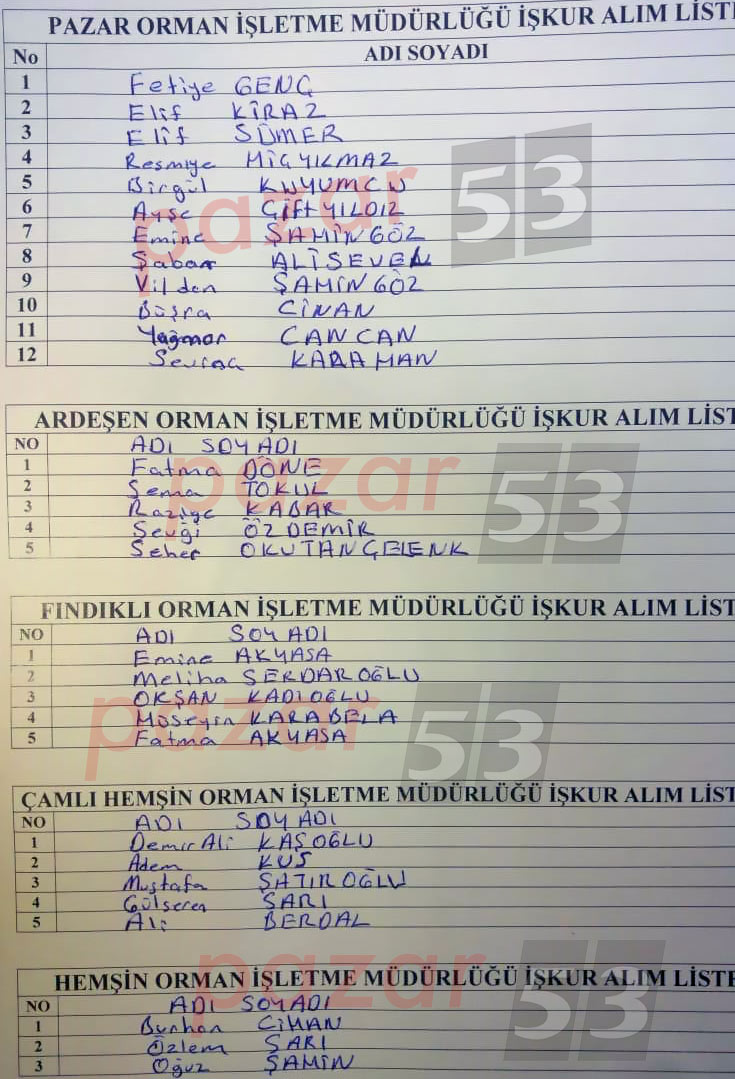 PAZAR ORMAN İŞLETME MÜDÜRLÜĞÜ İŞKUR ALIM LİSTE
No ADI SOYADI
1 Fetiye GENÇ
2 Elif KİRAZ
3 Elif SÜMER
4 Resmiye HİÇYILMAZ
5 Birgül KUYUMCU
6 Ayşe ÇİFTYILDIZ
7 Emine ŞAHİNGÖZ
8 Şaban ALİSEVEN
9 Vildan ŞAHİNGÖZ
10 Büşra CİNAN
11 Yağmur CANCAN
12 Sevinç KARAMAN
pazar 53
ARDEŞEN ORMAN İŞLETME MÜDÜRLÜĞÜ İŞKUR ALIM LİST
NO ADI SOYADI
1 Fatma DÖNE
2 Sema TOKUL
3 Raziye KABAR
4 Sevgi ÖZDEMİR
5 Seher OKUTANGELENK
pazar 53
FINDIKLI ORMAN İŞLETME MÜDÜRLÜĞÜ İŞKUR ALIM LİST
NO ADI SOYADI
1 Emine AKYASA
2 Meliha SERDAROĞLU
3 OKŞAN KADIOĞLU
4 Hüseyin KARABELA
5 Fatma AKYASA
pazar 53
ÇAMLI HEMŞİN ORMAN İŞLETME MÜDÜRLÜĞÜ İŞKUR ALIM LİST
NO ADI SOYADI
1 Demir Ali KAŞOĞLU
2 Adem KUŞ
3 Mustafa SATIROĞLU
4 Gülseren SARI
5 Ali BERDAL
pazar 53
HEMŞİN ORMAN İŞLETME MÜDÜRLÜĞÜ İŞKUR ALIM LİSTE
NO ADI SOYADI
1 Burhan CİHAN
2 Özlem SARI
3 Oğuz ŞAHİN